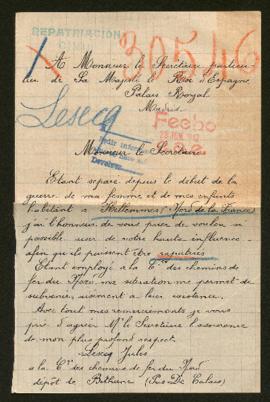 REPATRIACION
30546
A Monsieur le Secrétaire particu-
lier de Sa Majesté le Roi d'Espagne
Palais Royal
Madrid
Lesecq
Fecho
Pedir infor
Devolver
Monsieur le Secrétaire
Etant séparé depuis le début de la
guerre de ma femme et de mes enfants
habitant à Hellemmes (Nord de la France)
j'ai l'honneur de vous prier de vouloir
possible user de votre haute influence
afin qu'ils puissent être rapatriés
Etant employé à la Cie des chemins de
fer du Nord ma situation me permet de
subvenir aisément à leur existence.
Avec tous mes remerciements je vous
prie d'agréer Mr le Secrétaire l'assurance
de mon plus profond respect.
Lesecq Jules
à la Cie des chemins de fer du Nord
dépôt de Béthune (Pas-De Calais)